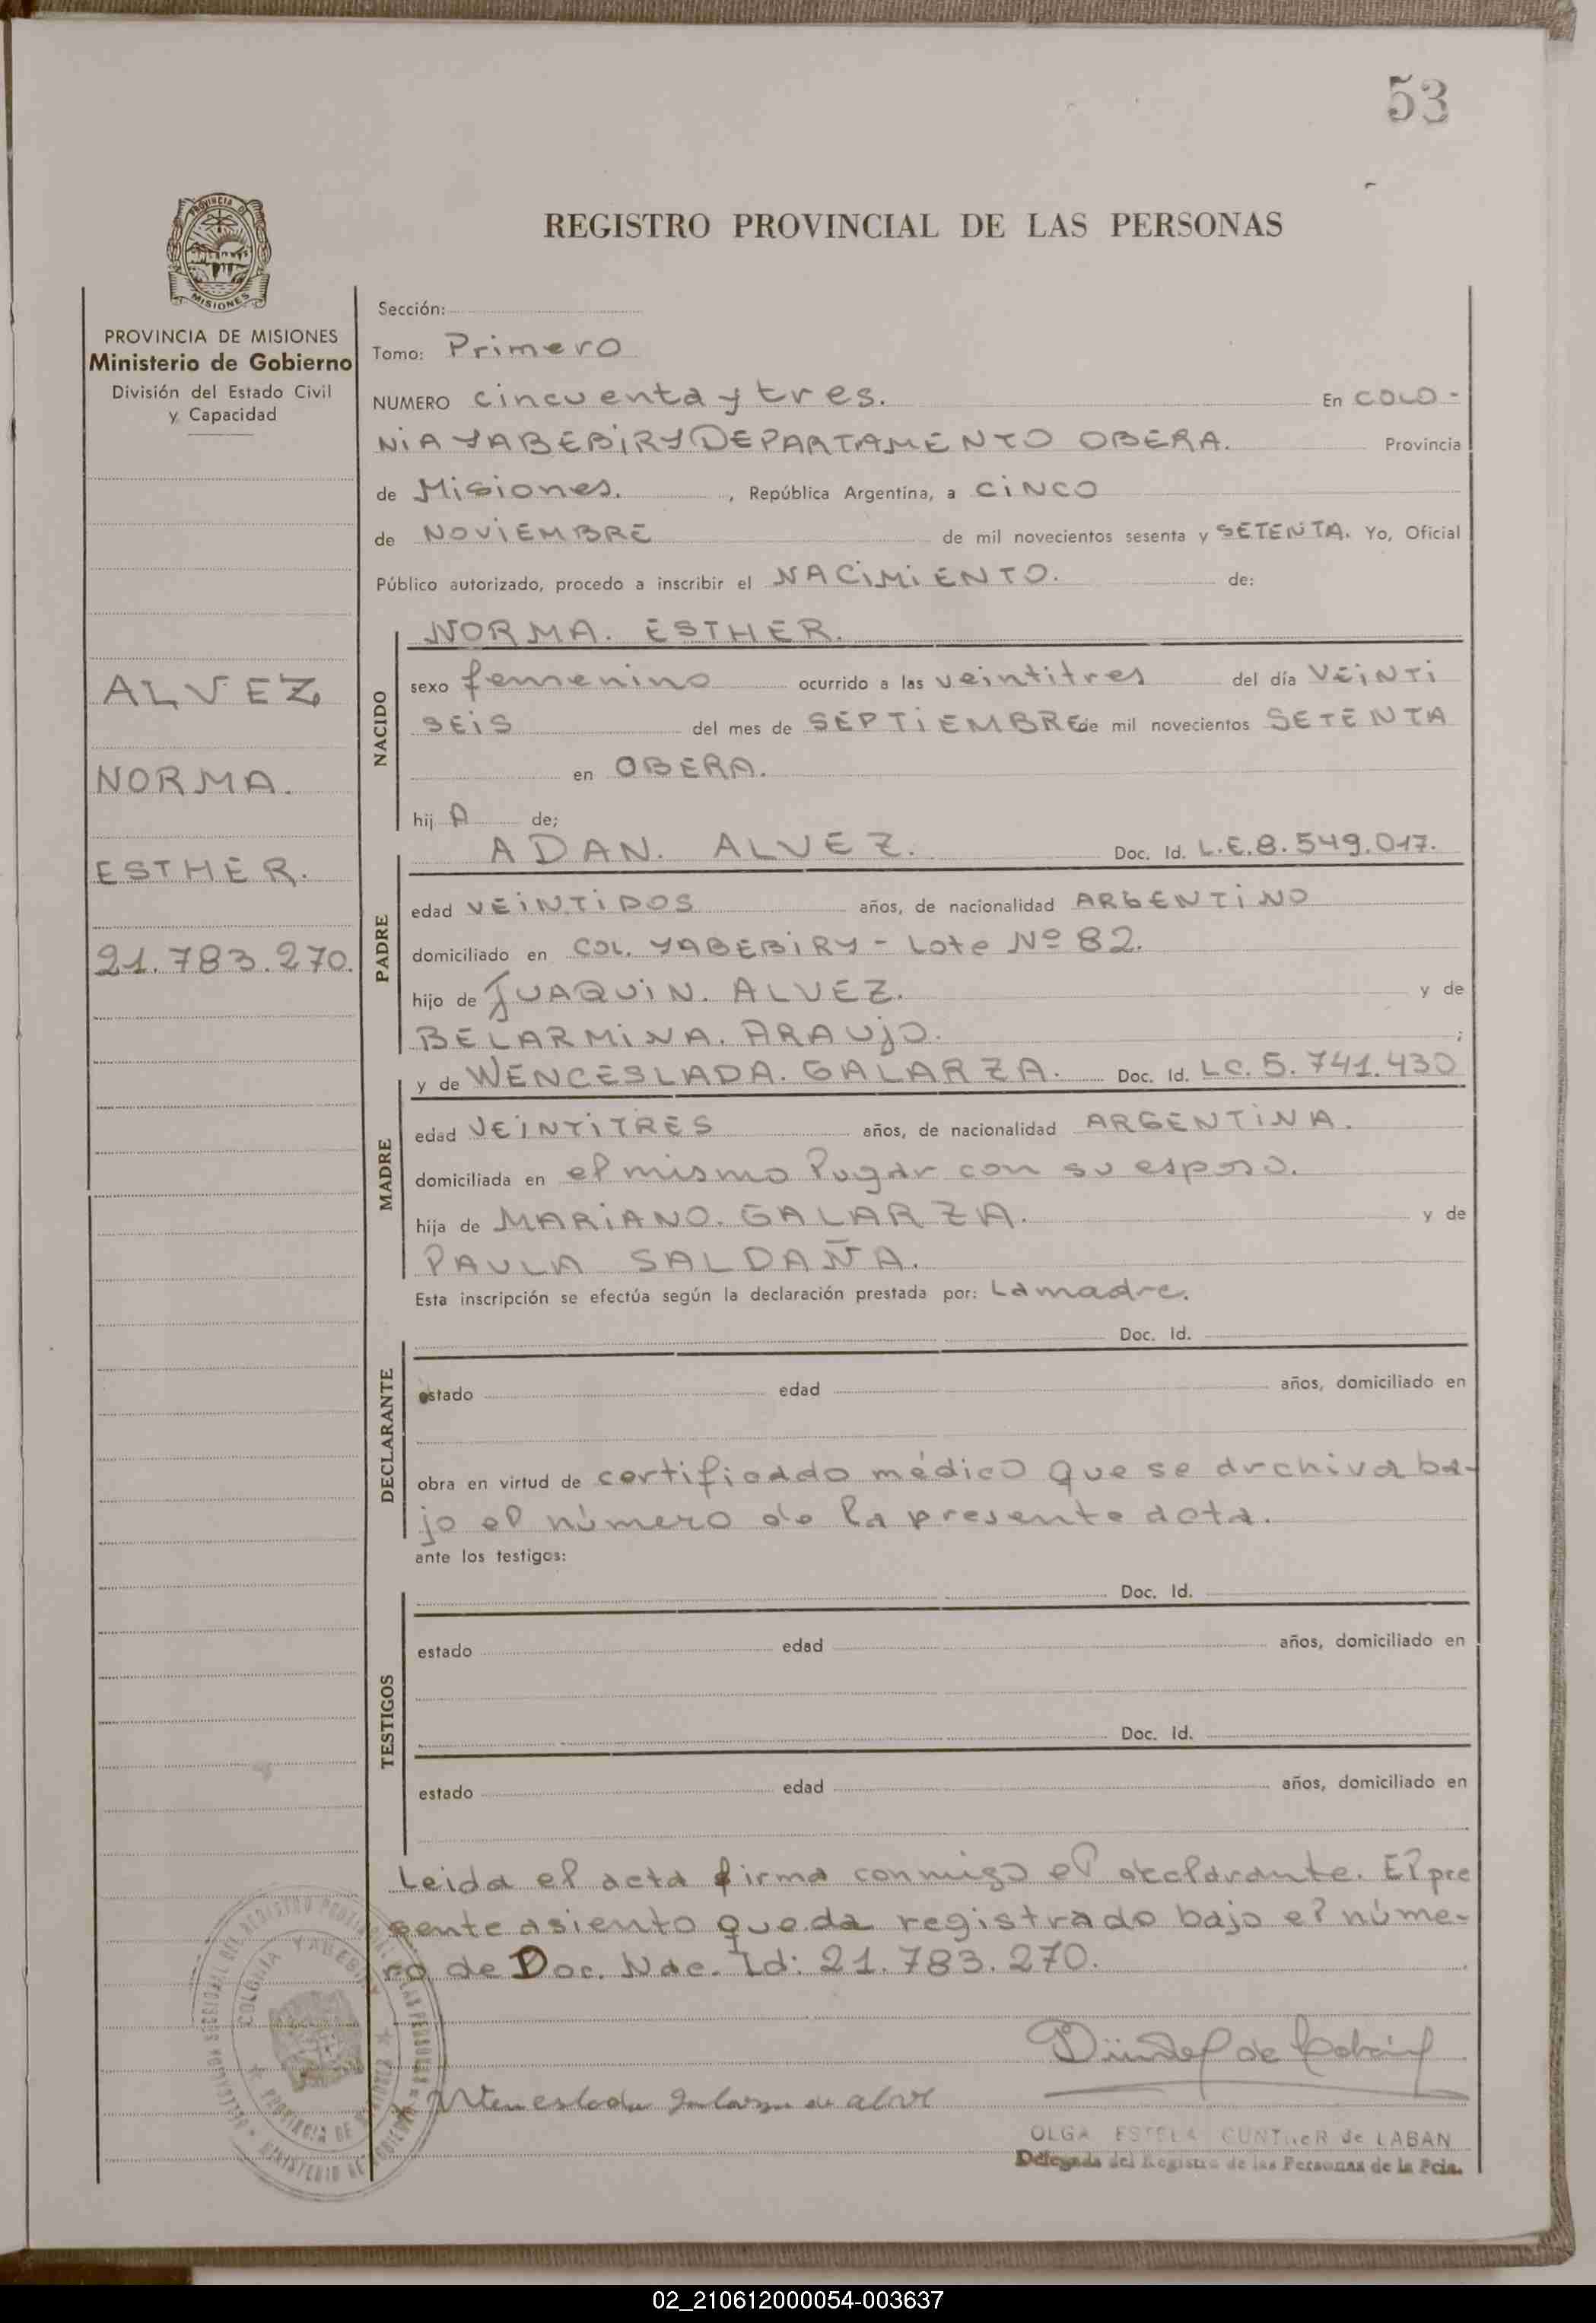 53
REGISTRO PROVINCIAL DE LAS PERSONAS
PROVINCIA DE MISIONES
Ministerio de Gobierno
División del Estado Civil
y Capacidad
ALVEZ
NORMA.
ESTHER.
21.783.270.
Sección:
Tomo: Primero
NUMERO cincuenta y tres. En COLO-
NIA YABEBIRY DEPARTAMENTO OBERA. Provincia
de Misiones. , República Argentina, a CINCO
de NOVIEMBRE de mil novecientos sesenta y SETENTA. Yo, Oficial
Público autorizado, procedo a inscribir el NACIMIENTO. de:
NACIDO
NORMA. ESTHER.
sexo femenino ocurrido a las veintitres del día VEINTI
SEIS del mes de SEPTIEMBRE de mil novecientos SETENTA
en OBERA.
hij A de;
PADRE
ADAN. ALVEZ. Doc. Id. L.E.8.549.017.
edad VEINTIDOS años, de nacionalidad ARGENTINO
domiciliado en COL. YABEBIRY - Lote Nº 82.
hijo de JUAQUIN. ALVEZ. y de
BELARMINA. ARAUJO. ;
MADRE
y de WENCESLADA. GALARZA. Doc. Id. LC. 5.741.430
edad VEINTITRES años, de nacionalidad ARGENTINA.
domiciliada en el mismo lugar con su esposo.
hija de MARIANO. GALARZA. y de
PAULA SALDAÑA.
Esta inscripción se efectúa según la declaración prestada por: La madre.
DECLARANTE
Doc. Id.
estado edad años, domiciliado en
obra en virtud de certificado médico que se archiva ba-
jo el número de la presente acta.
ante los testigos:
TESTIGOS
Doc. Id.
estado edad años, domiciliado en
Doc. Id.
estado edad años, domiciliado en
Leida el acta firma conmigo el declarante. El pre
sente asiento queda registrado bajo el núme-
ro de Doc. Nac. Id: 21.783.270.
COLONIA YABEBIRY
PROVINCIA DE
MINISTERIO DE
OLGA ESTELA GUNTHER de LABAN
Delegada del Registro de las Personas de la Pcia.
02_210612000054-003637